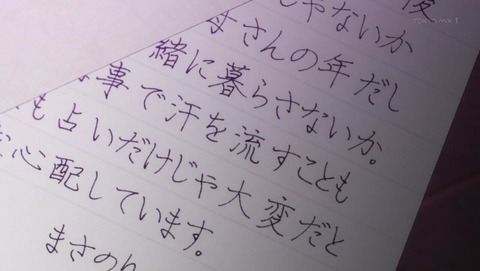 TOKYO MX 1
後
じゃないか
母さんの年だし
緒に暮らさないか。
事で汗を流すことも
も占いだけじゃ大変だと
心配しています。
まさのり